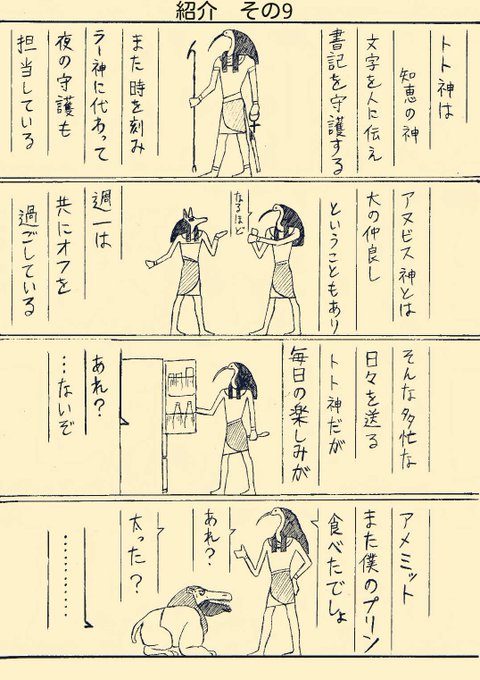 紹介 その9
トト神は
知恵の神
文字を人に伝え
書記を守護する
また時を刻み
ラー神に代わって
夜の守護も
担当している
アヌビス神とは
大の仲良し
ということもあり
なるほど
週一は
共にオフを
過ごしている
そんな多忙な
日々を送る
トト神だが
毎日の楽しみが
あれ?
…ないぞ
アメミット
また僕のプリン
食べたでしょ
あれ?
太った?
…………